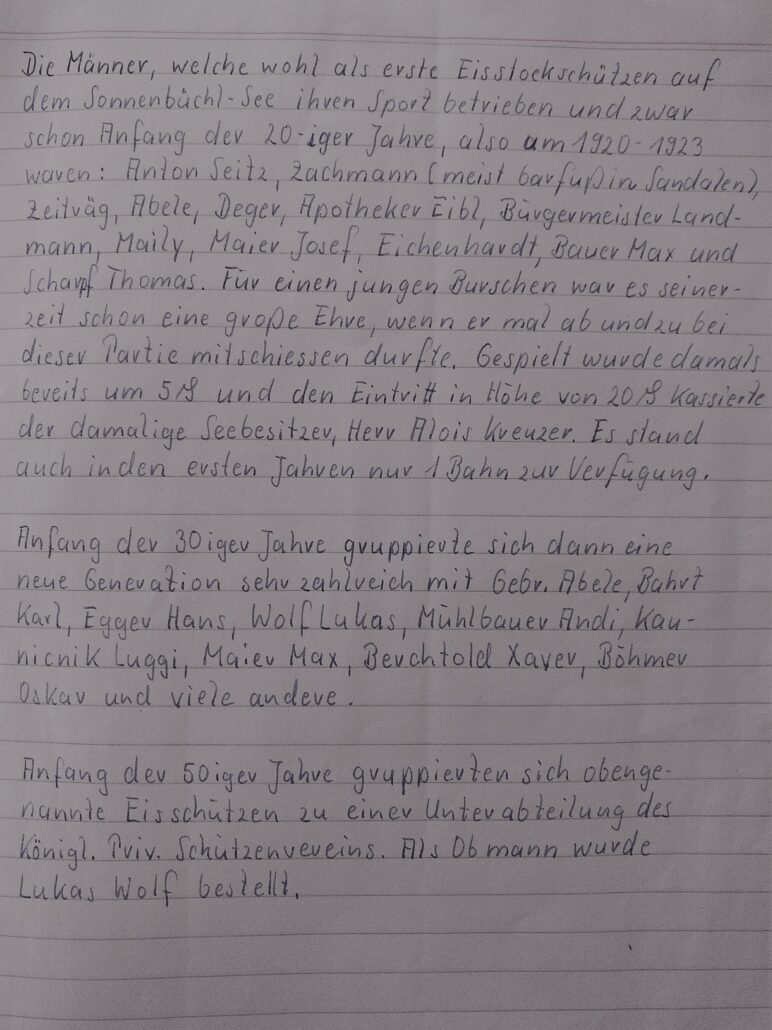 Die Männer, welche wohl als erste Eisstockschützen auf
dem Sonnenbüchl-See ihren Sport betrieben und zwar
schon Anfang der 20-iger Jahre, also am 1920-1923
waren: Anton Seitz, Zachmann (meist barfuß in Sandalen),
Zeiträg, Abele, Deger, Apotheker Eibl, Bürgermeister Land-
mann, Maily, Maier Josef, Eichenhardt, Bauer Max und
Scharpf Thomas. Für einen jungen Burschen war es seiner-
zeit schon eine große Ehre, wenn er mal ab und zu bei
dieser Partie mitschiessen durfte. Gespielt wurde damals
bereits um 5 ₰ und den Eintritt in Höhe von 20 ₰ kassierte
der damalige Seebesitzer, Herr Alois Kreuzer. Es stand
auch in den ersten Jahren nur 1 Bahn zur Verfügung.
Anfang der 30iger Jahre gruppierte sich dann eine
neue Generation sehr zahlreich mit Gebr. Abele, Bahrt
Karl, Egger Hans, Wolf Lukas, Mühlbauer Andi, Kau-
nicnik Luggi, Maier Max, Berchtold Xaver, Böhmer
Oskar und viele andere.
Anfang der 50iger Jahre gruppierten sich obenge-
nannte Eisschützen zu einer Unterabteilung des
Königl. Priv. Schützenvereins. Als Obmann wurde
Lukas Wolf bestellt.